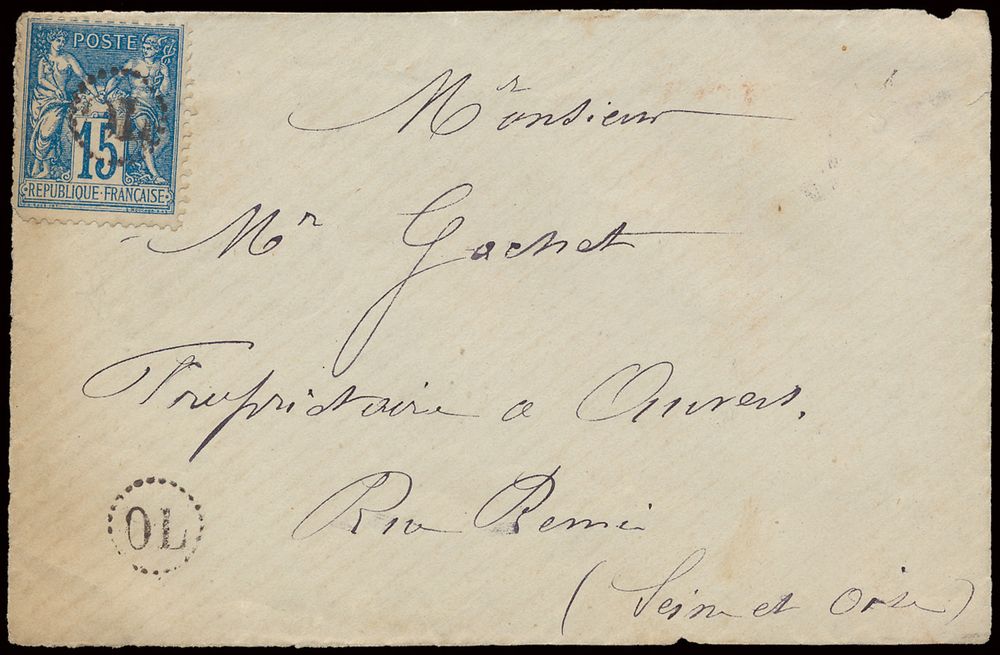 POSTE
OL
15
REPUBLIQUE·FRANÇAISE
Monsieur
Mr Gachet
Propriétaire a Auvers.
Rue Remi
OL
(Seine et Oise)